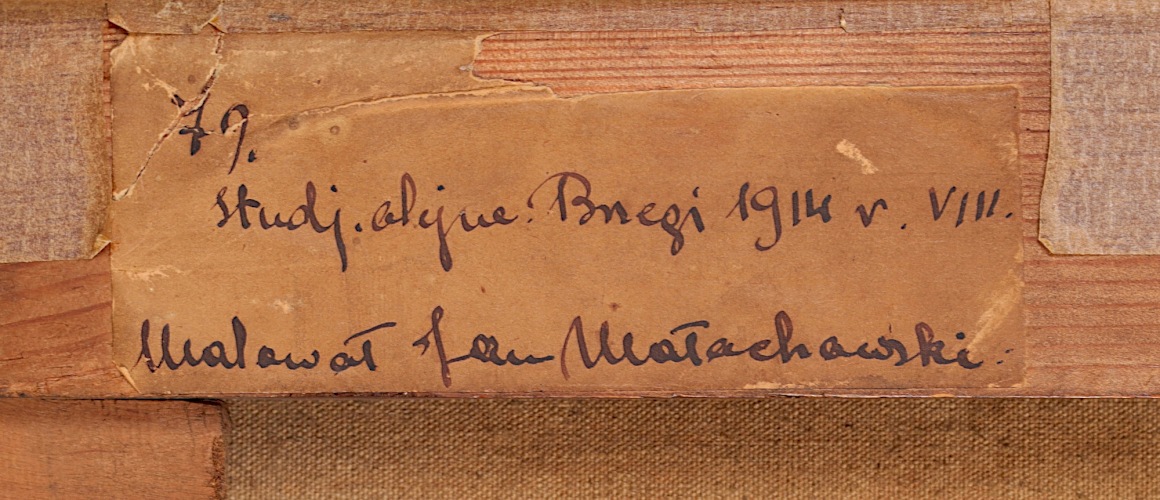 79.
studj. olejne. Brzegi 1914 r. VIII.
Malował Jan Małachowski.